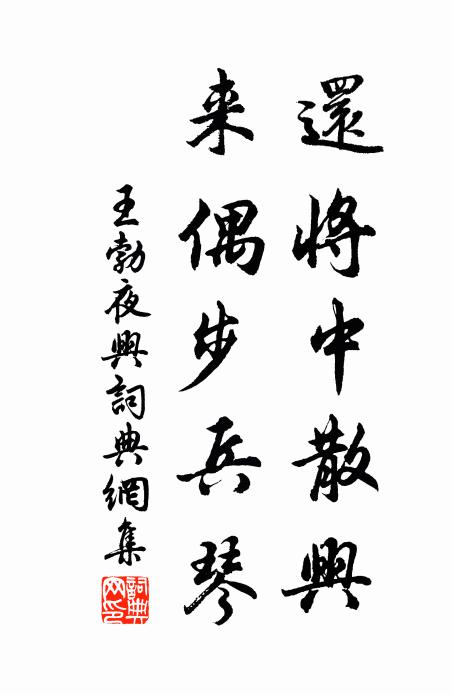 還將中散興
来偶步兵琴
王勃夜興詞典網集
詞典網印